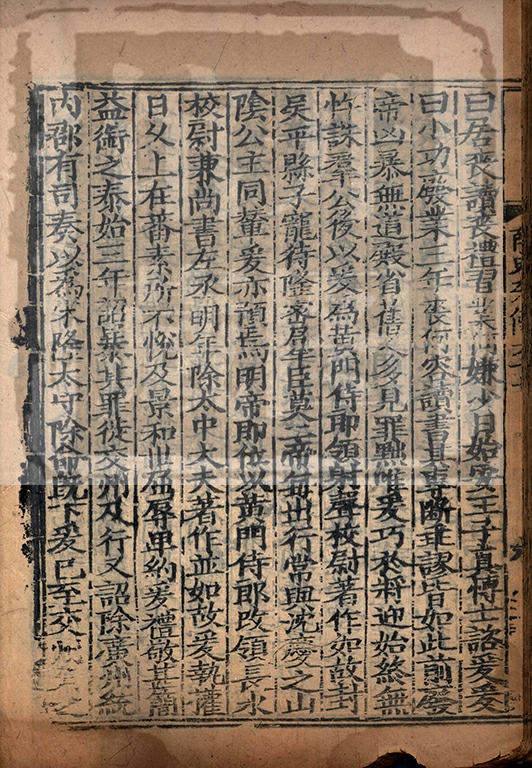 曰居喪讀喪禮習業何嫌少日始安王子真博士諮爰爰
曰小功廢業三年喪何容讀書其專斷乖謬皆如此前廢
帝凶暴無道殿省舊人多見罪黜惟爰巧於將迎始終無
忤誅羣公後以爰爲黄門侍郎領射聲校尉著作如故封
吳平縣子寵待隆密羣臣莫二帝每出行常與沈慶之山
陰公主同輦爰亦預焉明帝即位以黄門侍郎改領長水
校尉兼尚書左丞明年除太中大夫著作並如故爰執權
日久上在蕃素所不悅及景和世屈辱卑約爰禮敬甚簡
益銜之泰始三年詔暴其罪徙交州及行又詔除廣州統
内郡有司奏以爲宋隆太守除命既下爰已至交之